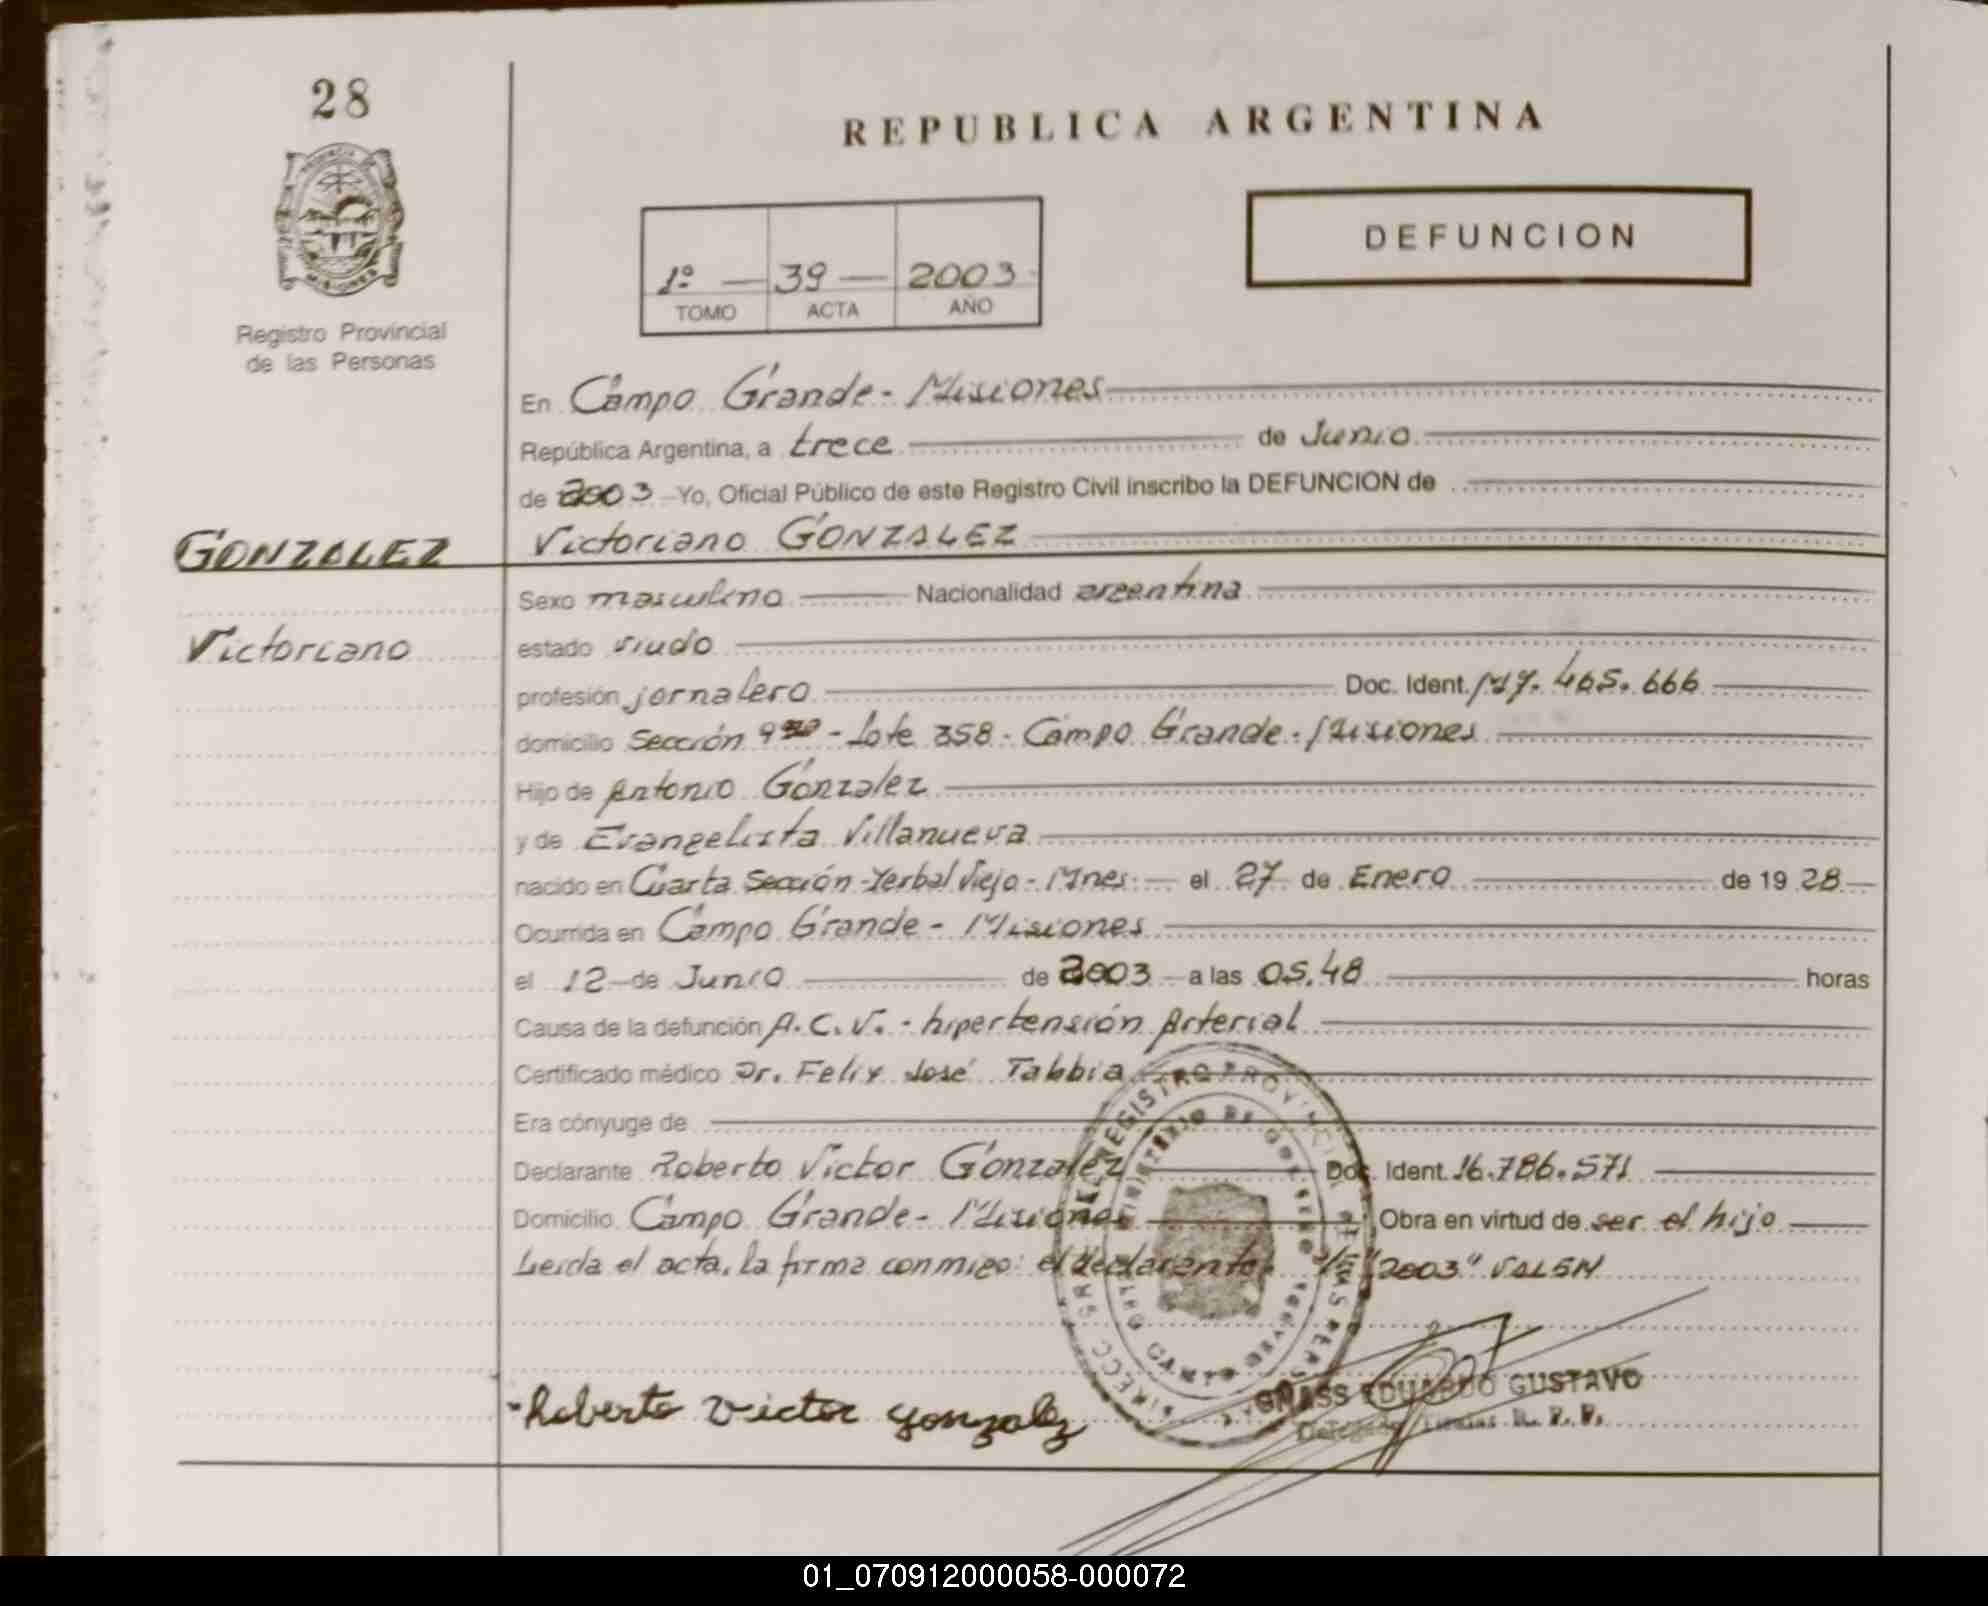 28
REPUBLICA ARGENTINA
DEFUNCION
1º — 39 — 2003
TOMO ACTA AÑO
Registro Provincial
de las Personas
En Campo Grande - Misiones
República Argentina, a trece de Junio
de 2003 Yo, Oficial Público de este Registro Civil inscribo la DEFUNCION de
GONZALEZ Victoriano GONZALEZ
Sexo masculino Nacionalidad argentina
Victoriano estado viudo
profesión jornalero Doc. Ident. M7.465.666
domicilio Sección - Lote 358 - Campo Grande - Misiones
Hijo de Antonio Gonzalez
y de Evangelista Villanueva
nacido en Cuarta Sección - Yerbal Viejo - Mnes. — el 27 de Enero de 19 28
Ocurrida en Campo Grande - Misiones
el 12 de Junio de 2003 a las 05.48 horas
Causa de la defunción A.C.V. - hipertensión Arterial
Certificado médico Dr. Felix José Tabbia
Era cónyuge de
Declarante Roberto Victor Gonzalez Doc. Ident. 16.786.571
Domicilio Campo Grande - Misiones Obra en virtud de ser el hijo
Leida el acta, la firma conmigo: el declarante. "2003" VALEN
Roberto Victor Gonzalez
GRASS EDUARDO GUSTAVO
R. P. P.
01_070912000058-000072